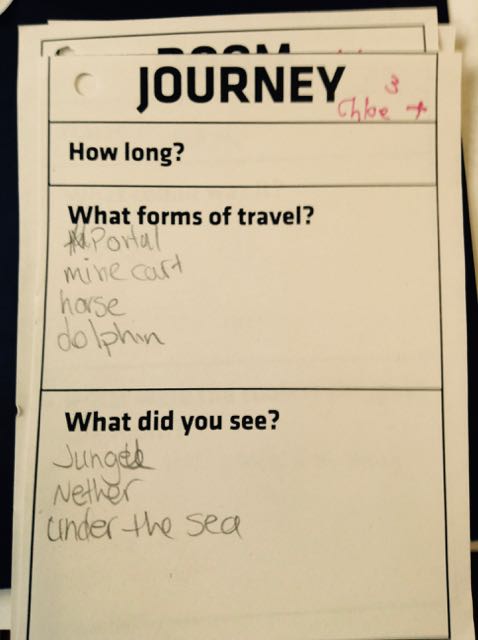 ROOM
JOURNEY
3
Chloe +
How long?
What forms of travel?
Portal
mine cart
horse
dolphin
What did you see?
Jungle
Nether
under the sea